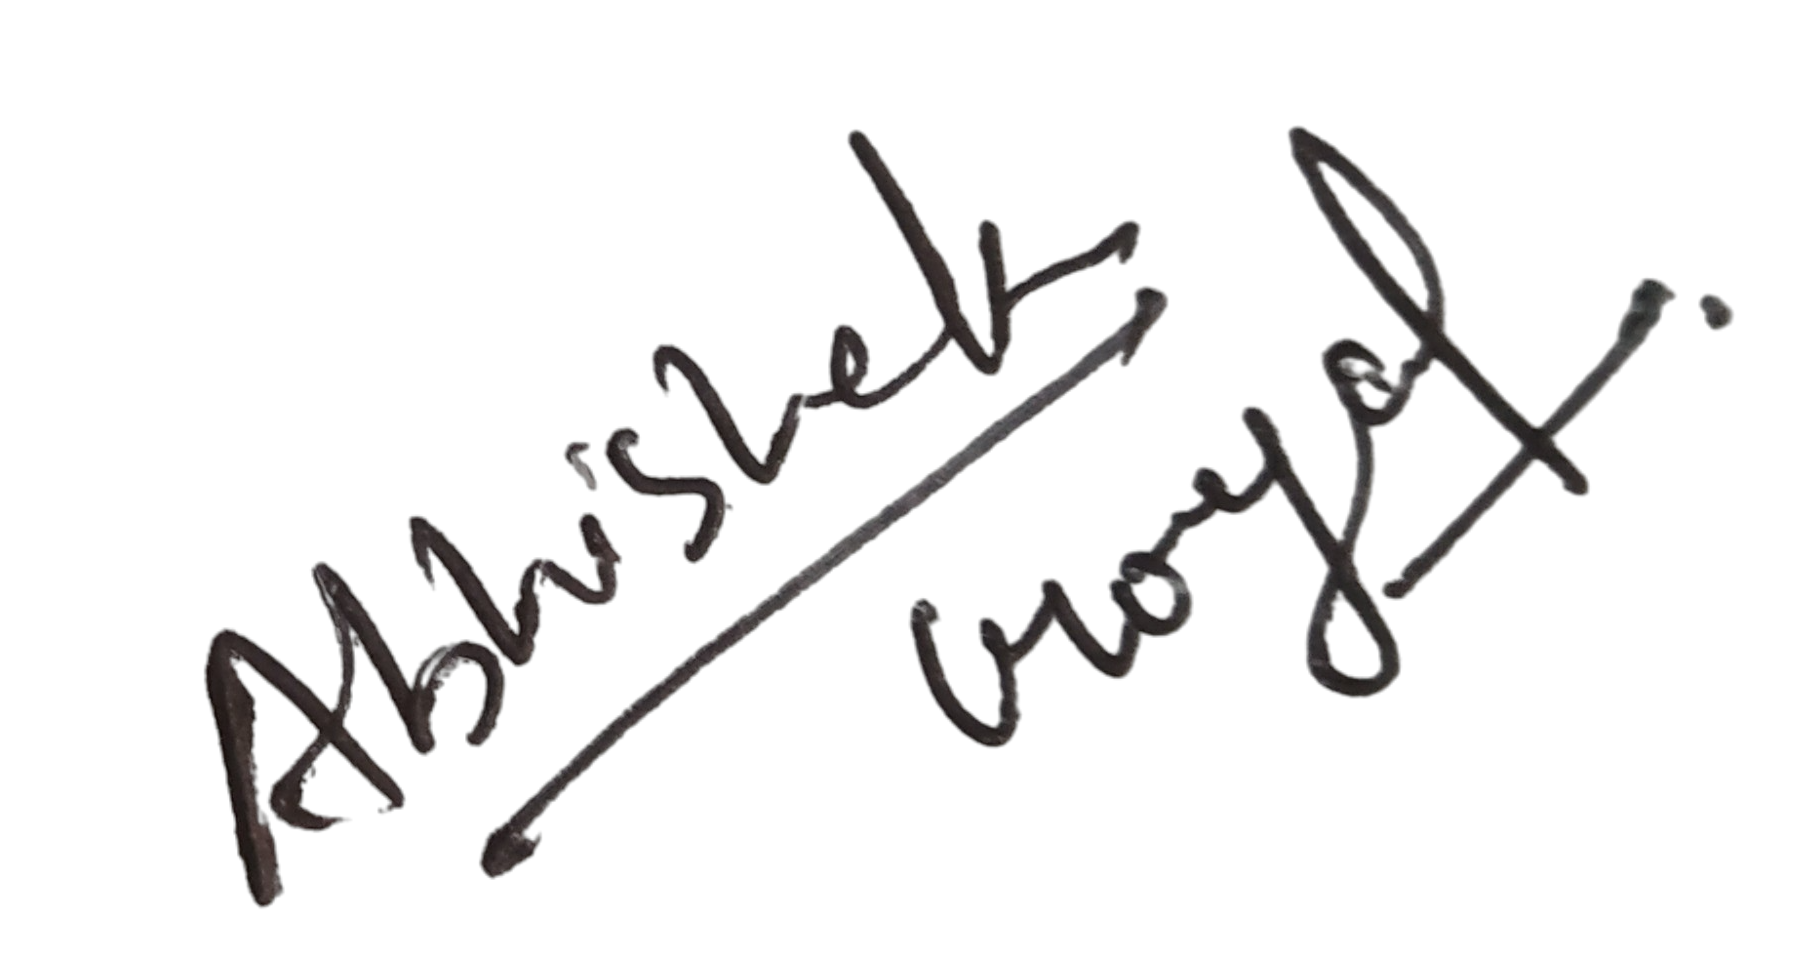 Abhishek Goyal.